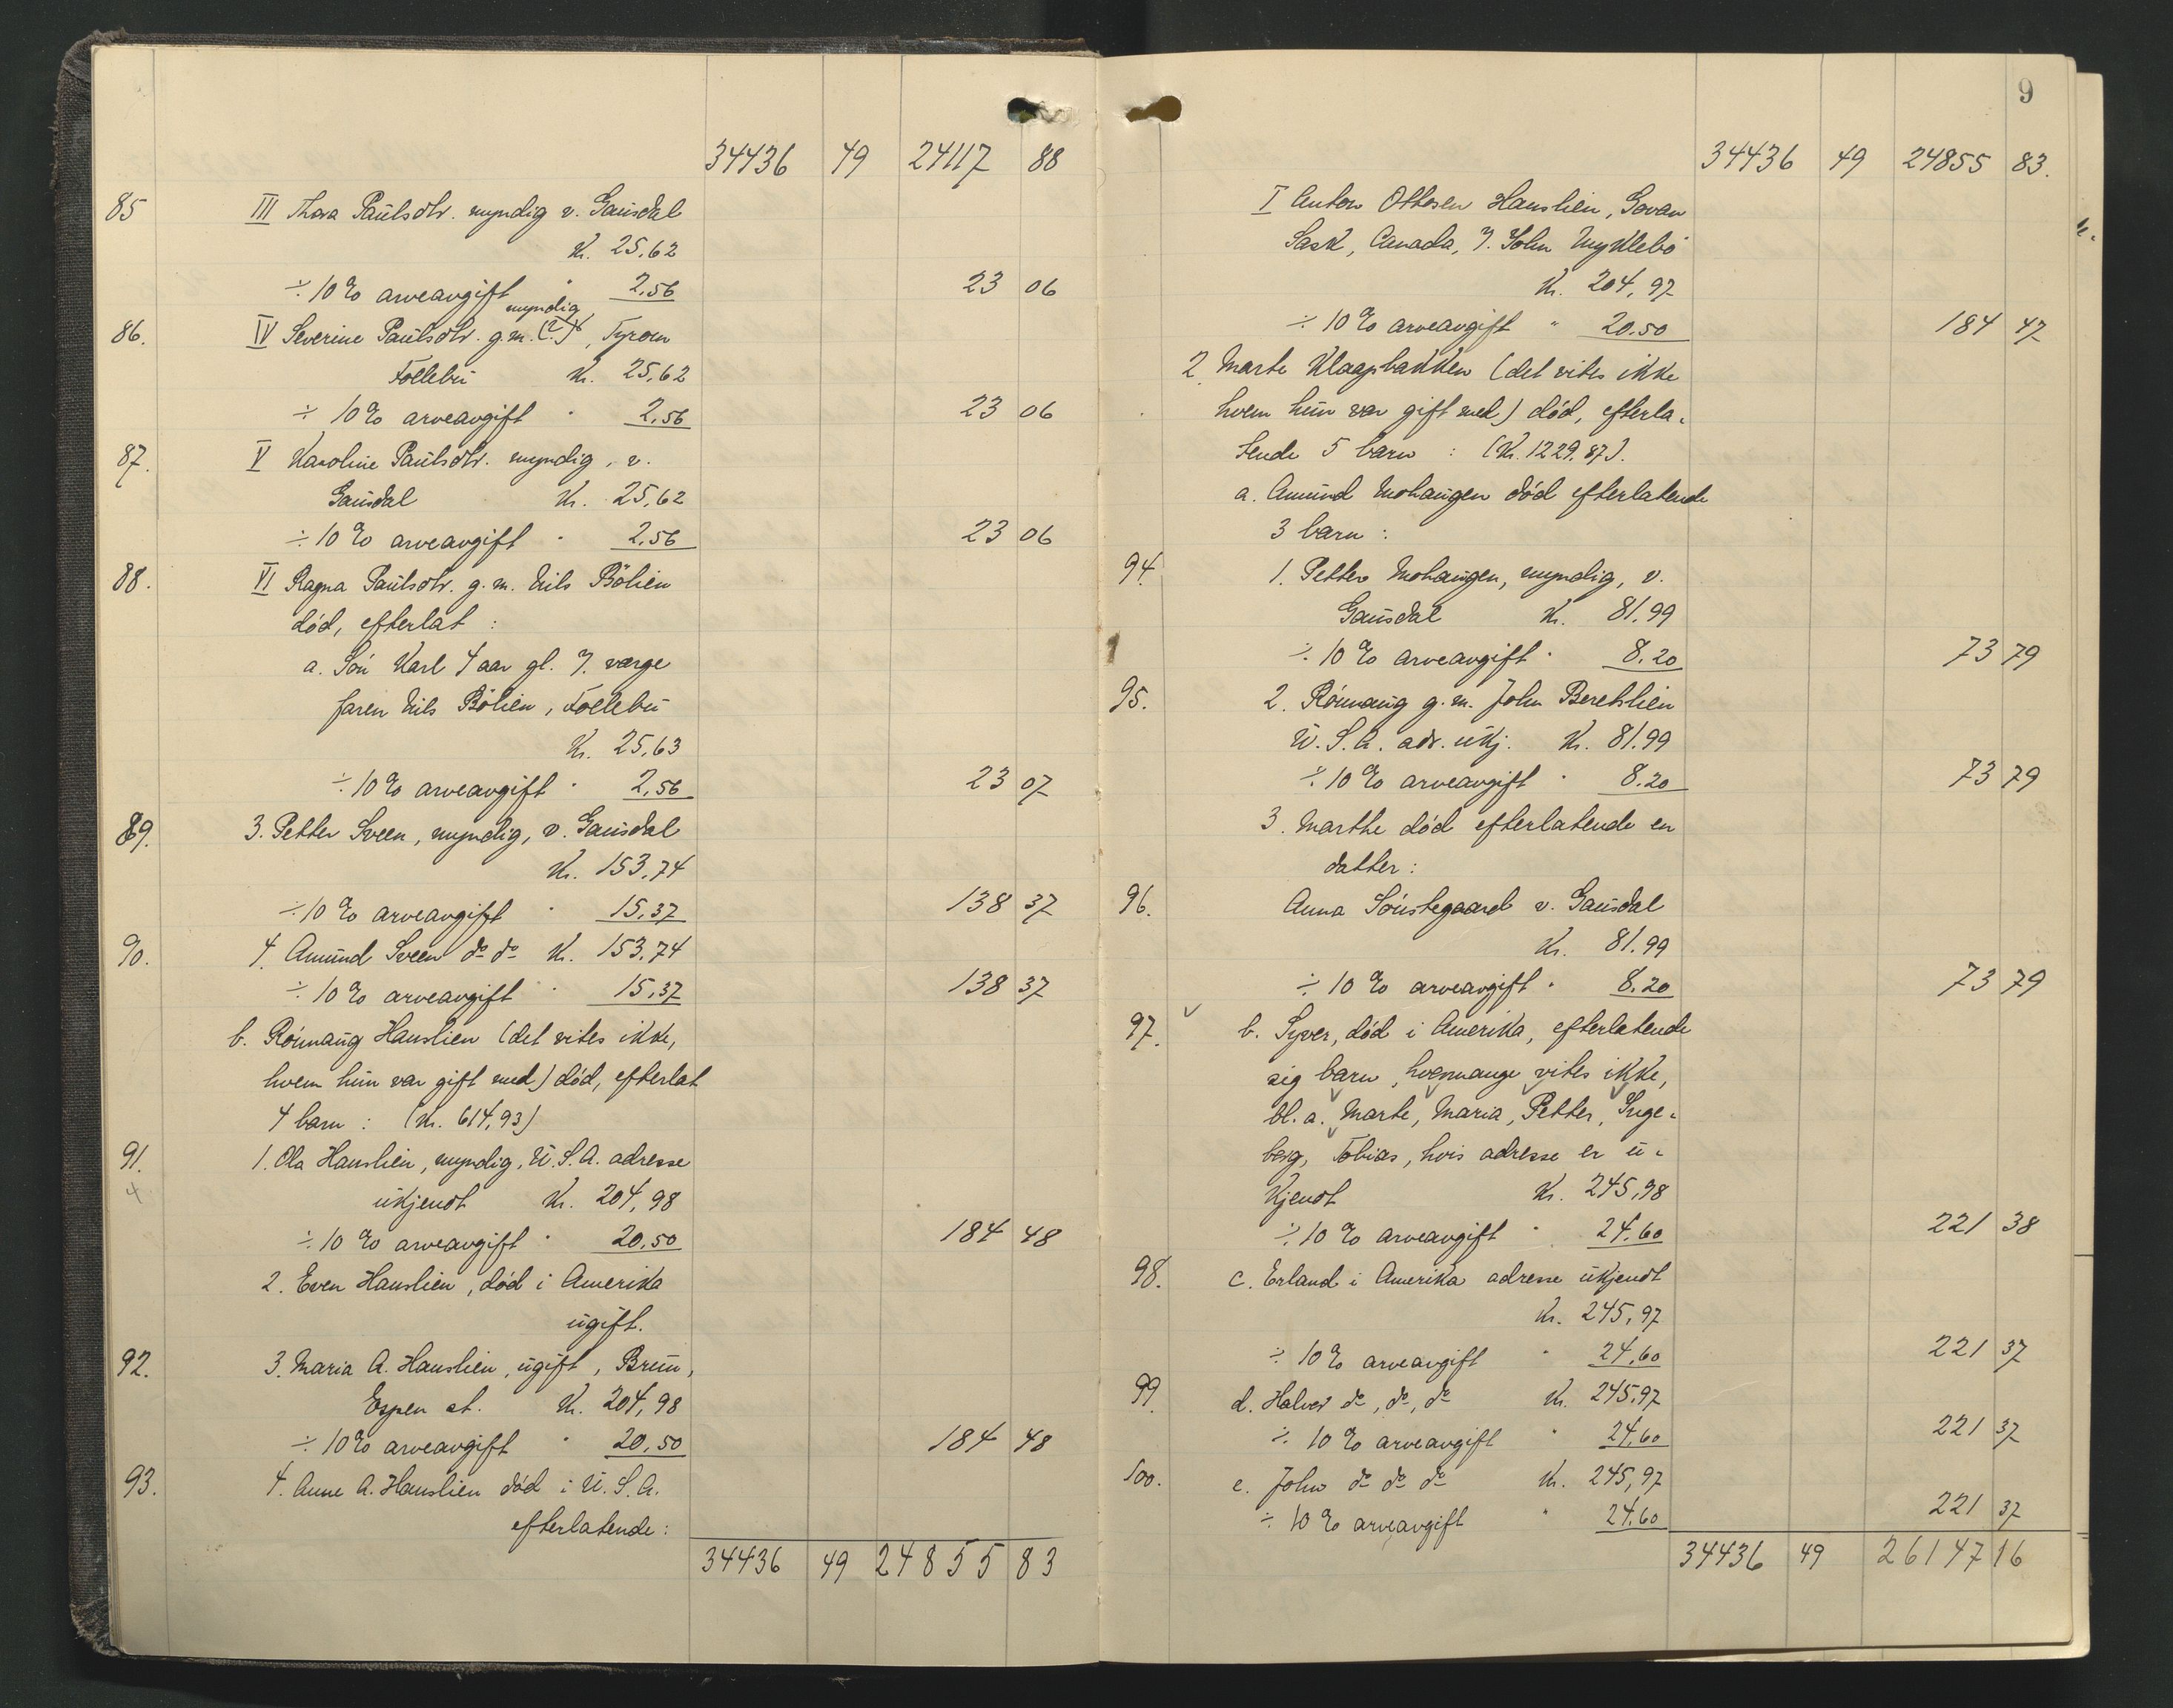 34436 49 24117 88
85 III Thora Paulsdtr. myndig v. Gausdal
Kr. 25,62
÷ 10 % arveavgift " 2,56 23 06
myndig
86. IV Severine Paulsdtr. g.m. (?), Tyrom
Follebu Kr. 25,62
÷ 10 % arveavgift " 2,56 23 06
87. V Karoline Paulsdtr. myndig, v.
Gausdal Kr. 25,62
÷ 10 % arveavgift " 2,56 23 06
88. VI Ragna Paulsdtr. g.m. Nils Bölien
död, efterlat :
a. Sön Karl 4 aar gl. F. verge
faren Nils Bölien, Follebu
Kr. 25,63
÷ 10 % arveavgift " 2,56 23 07
89. 3. Petter Sveen, myndig, v. Gausdal
Kr. 153,74
÷ 10 % arveavgift " 15,37 138 37
90. 4. Amund Sveen do do Kr. 153,74
÷ 10 % arveavgift " 15,37 138 37
b. Rönnaug Hauslien (det vites ikke,
hvem hun var gift med) död, efterlat
4 barn : (Kr. 614,93)
91. 1. Ola Hauslien, myndig, U.S.A. adresse
4 ukjendt Kr. 204,98
÷ 10 % arveavgift " 20,50 184 48
2. Even Hauslien, död i Amerika
ugift.
92. 3. Maria A. Hauslien, ugift, Brun,
Espen st. Kr. 204,98
÷ 10 % arveavgift " 20,50 184 48
93. 4. Anne A. Hauslien död i U.S.A.
efterlatende :
34436 49 24855 83
9
34436 49 24855 83.
I Anton Ottesen Hauslien, Govan
Sask, Canada, F. John Myklebö
Kr. 204,97
÷ 10 % arveavgift " 20.50 184 47
2. Marte Klaapbakken (det vites ikke
hvem hun var gift med) död, efterla-
tende 5 barn : (Kr. 1229.87).
a. Amund Mohaugen död efterlatende
3 barn :
94. 1. Petter Mohaugen, myndig, v.
Gausdal Kr. 81.99
÷ 10 % arveavgift " 8.20 73 79
95. 2. Rönnaug g.m. John Berehslien
U.S.A. adr. ukj. Kr. 81.99
÷ 10 % arveavgift " 8.20 73 79
3. Marthe död efterlatende en
datter :
96. Anna Sönstegaard v. Gausdal
Kr. 81.99
÷ 10 % arveavgift " 8.20 73 79
97. b. Syver, död i Amerika, efterlatende
sig barn, hvormange vites ikke,
bl.a. Marte, Maria, Petter, Inge-
berg, Tobias, hvis adresse er u-
kjendt Kr. 245,98
÷ 10 % arveavgift " 24.60 221 38
98. c. Erland i Amerika adresse ukjendt
Kr. 245,97
÷ 10 % arveavgift " 24.60 221 37
99. d. Halver do, do, do Kr. 245.97
÷ 10 % arveavgift " 24.60 221 37
100. e. John do do do Kr. 245,97
÷ 10 % arveavgift " 24.60 221 37
34436 49 26147 16